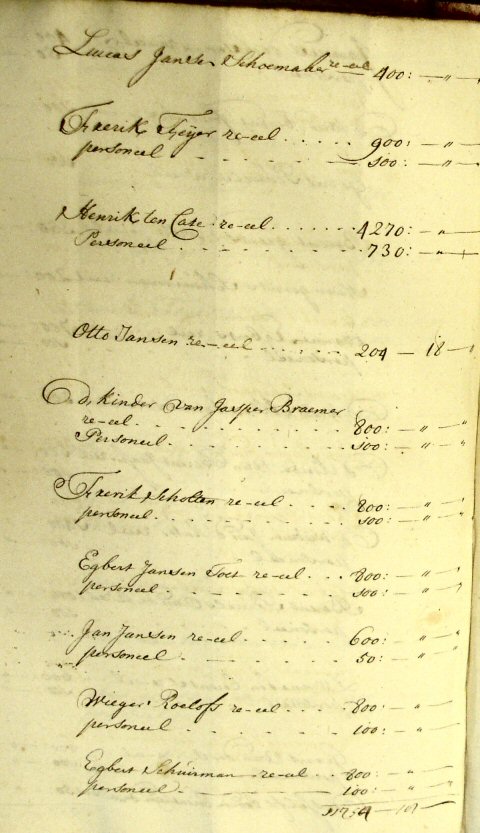 Lucas Jansen Schoemaker re-eel — 400: — „ —
Frerik Heijer re-eel . . . . . . 900: — „ —
personeel - - - - - - - 100: — „ —
Henrik ten Cate re-eel . . . . . . 4270: — „ —
Personeel . . . . . . . 730: — „ —
Otto Jansen re-eel . . . . . . 204 — 18 —
de kinder van Jasper Braemer
re-eel . . . . . . . 800: — „ — „
Personeel . . . . . . . 100: — „ — „
Frerik Scholten re-eel . . . . 800: — „ —
personeel . . . . . . . 100: — „ — „
Egbert Jansen Toet re-eel . . . 800: — „ —
personeel . . . . . . . 100: — „ —
Jan Jansen re-eel . . . . . 600: — „ — „
personeel - - - - - - 50: — „ — „
Wieger Roelofs re-eel . . . . 800: — „ —
personeel . . . . . . . 100: — „ —
Egbert Schuirman re-eel . . 800: — „ —
personeel - - - - - 100: — „ —